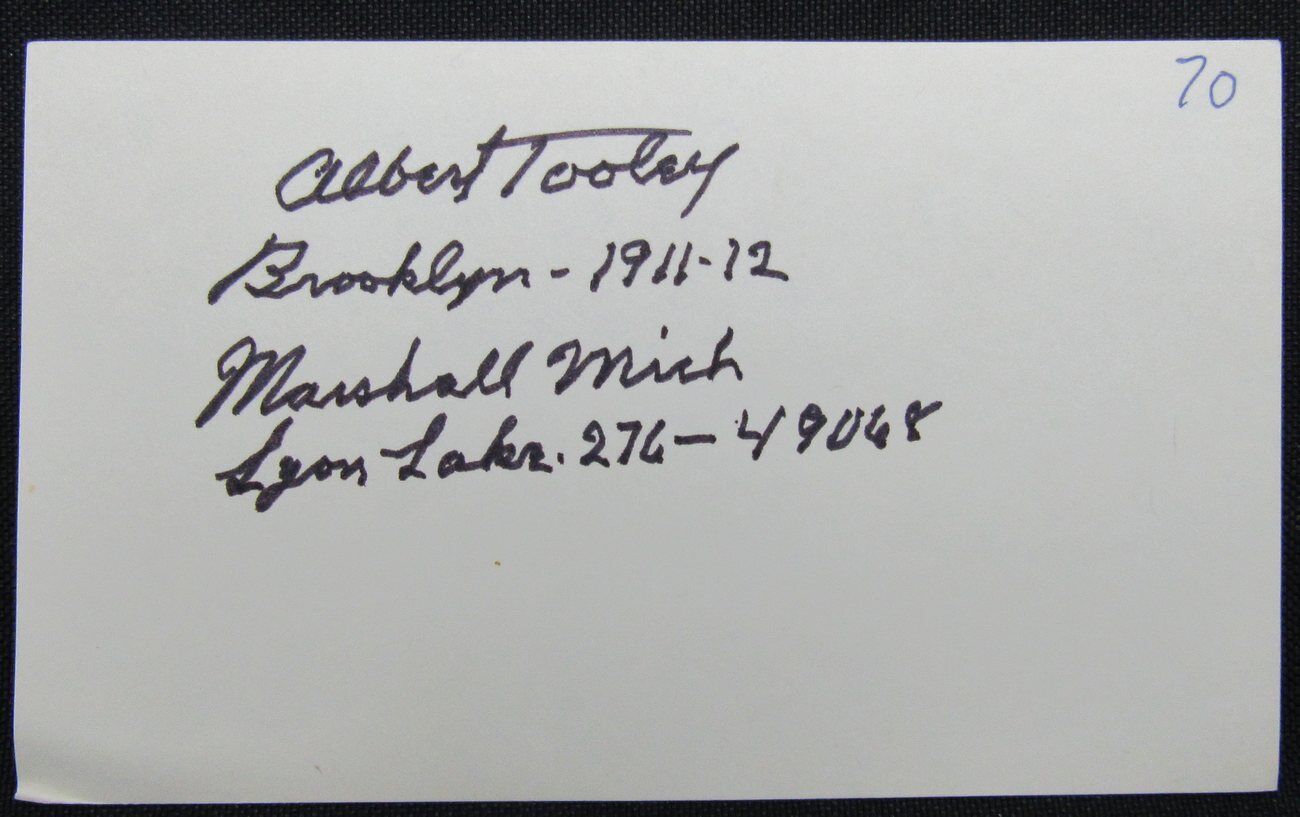 70
Albert Tooley
Brooklyn - 1911-12
Marshall Mich
Lyon Lake. 276 - 49068